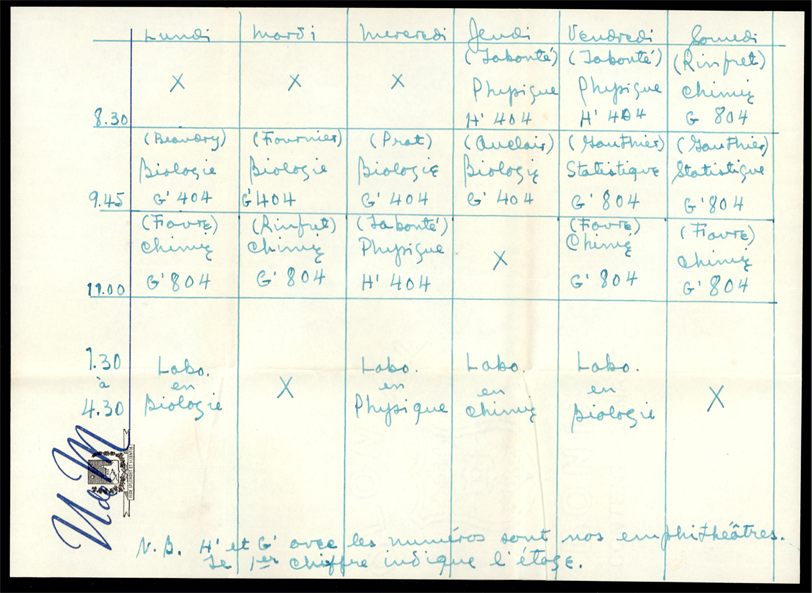 Lundi Mardi Mercredi Jeudi Vendredi Samedi
8.30
X
X
X
(Labonté)
Physique
H' 404
(Labonté)
Physique
H' 404
(Rinfret)
Chimie
G 804
9.45
(Beaudry)
Biologie
G' 404
(Fournier)
Biologie
G' 404
(Prat)
Biologie
G' 404
(Auclair)
Biologie
G' 404
(Gauthier)
Statistique
G' 804
(Gauthier)
Statistique
G' 804
11.00
(Favre)
Chimie
G' 804
(Rinfret)
Chimie
G' 804
(Labonté)
Physique
H' 404
X
(Favre)
Chimie
G' 804
(Favre)
Chimie
G' 804
1.30
à
4.30
Labo.
en
Biologie
X
Labo.
en
Physique
Labo.
en
Chimie
Labo.
en
Biologie
X
U de M
N.B. H' et G' avec les numéros sont nos emphithéâtres.
Le 1er chiffre indique l'étage.